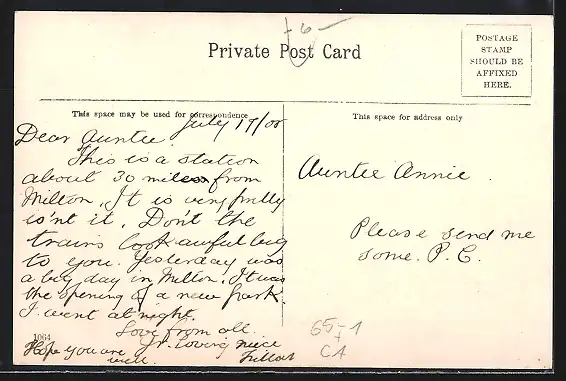 +6 –
Private Post Card
POSTAGE
STAMP
SHOULD BE
AFFIXED
HERE.
This space may be used for correspondence
This space for address only
July 17/08
Dear Auntie
This is a station
about 30 miles from
Milton. It is very pretty
is'nt it. Don't the
trains look awful big
to you. Yesterday was
a big day in Milton. It was
the opening of a new park.
I went at night.
Love from all.
Yr. loving niece
Hope you are
well.
1064
Auntie Annie.
Please send me
some. P.C.
65-1
+
C1